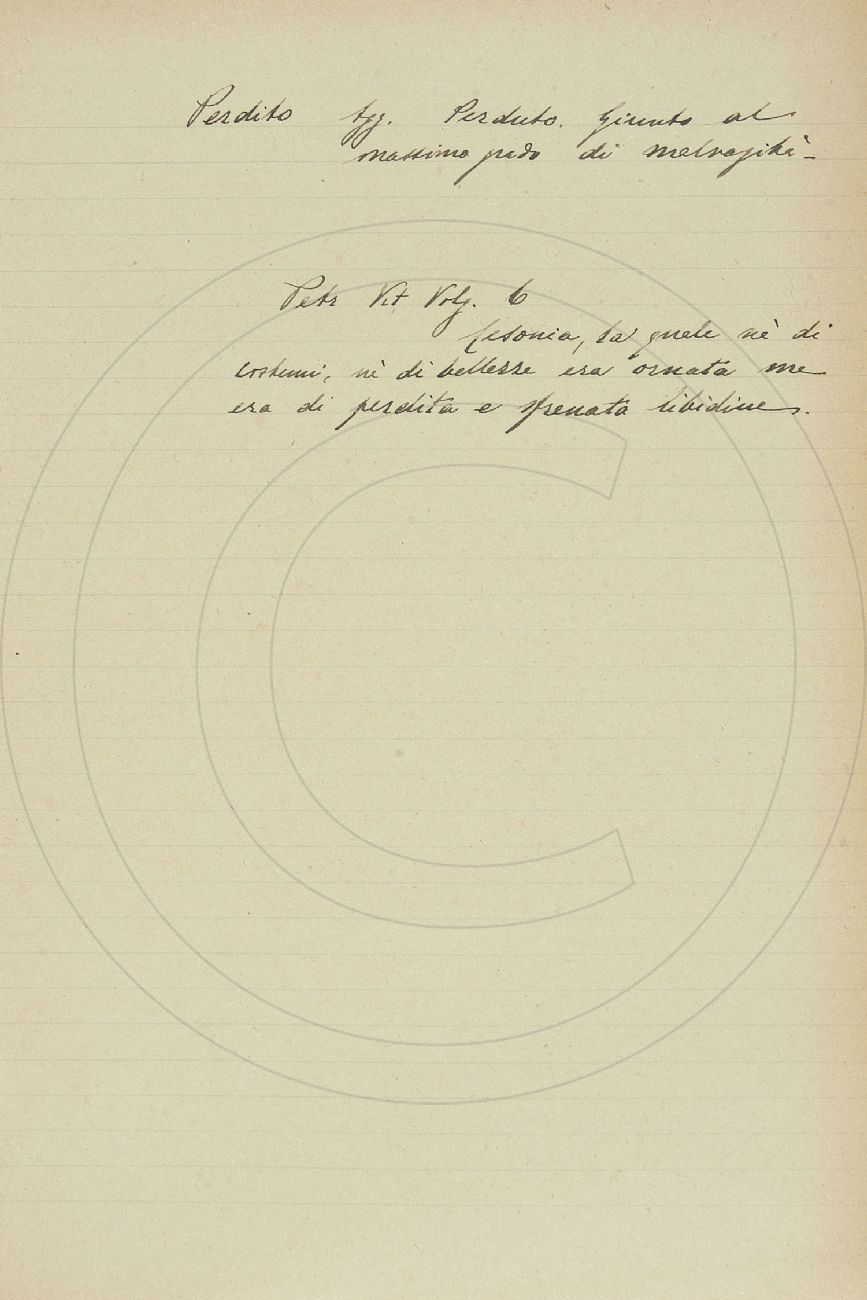 Perdito Agg. Perduto. Giunto al
massimo grado di malvagità -
Petr Vit Volg. 6
Cesonia, la quale nè di
costumi, nè di bellezze era ornata ma
era di perdita e sfrenata libidine.